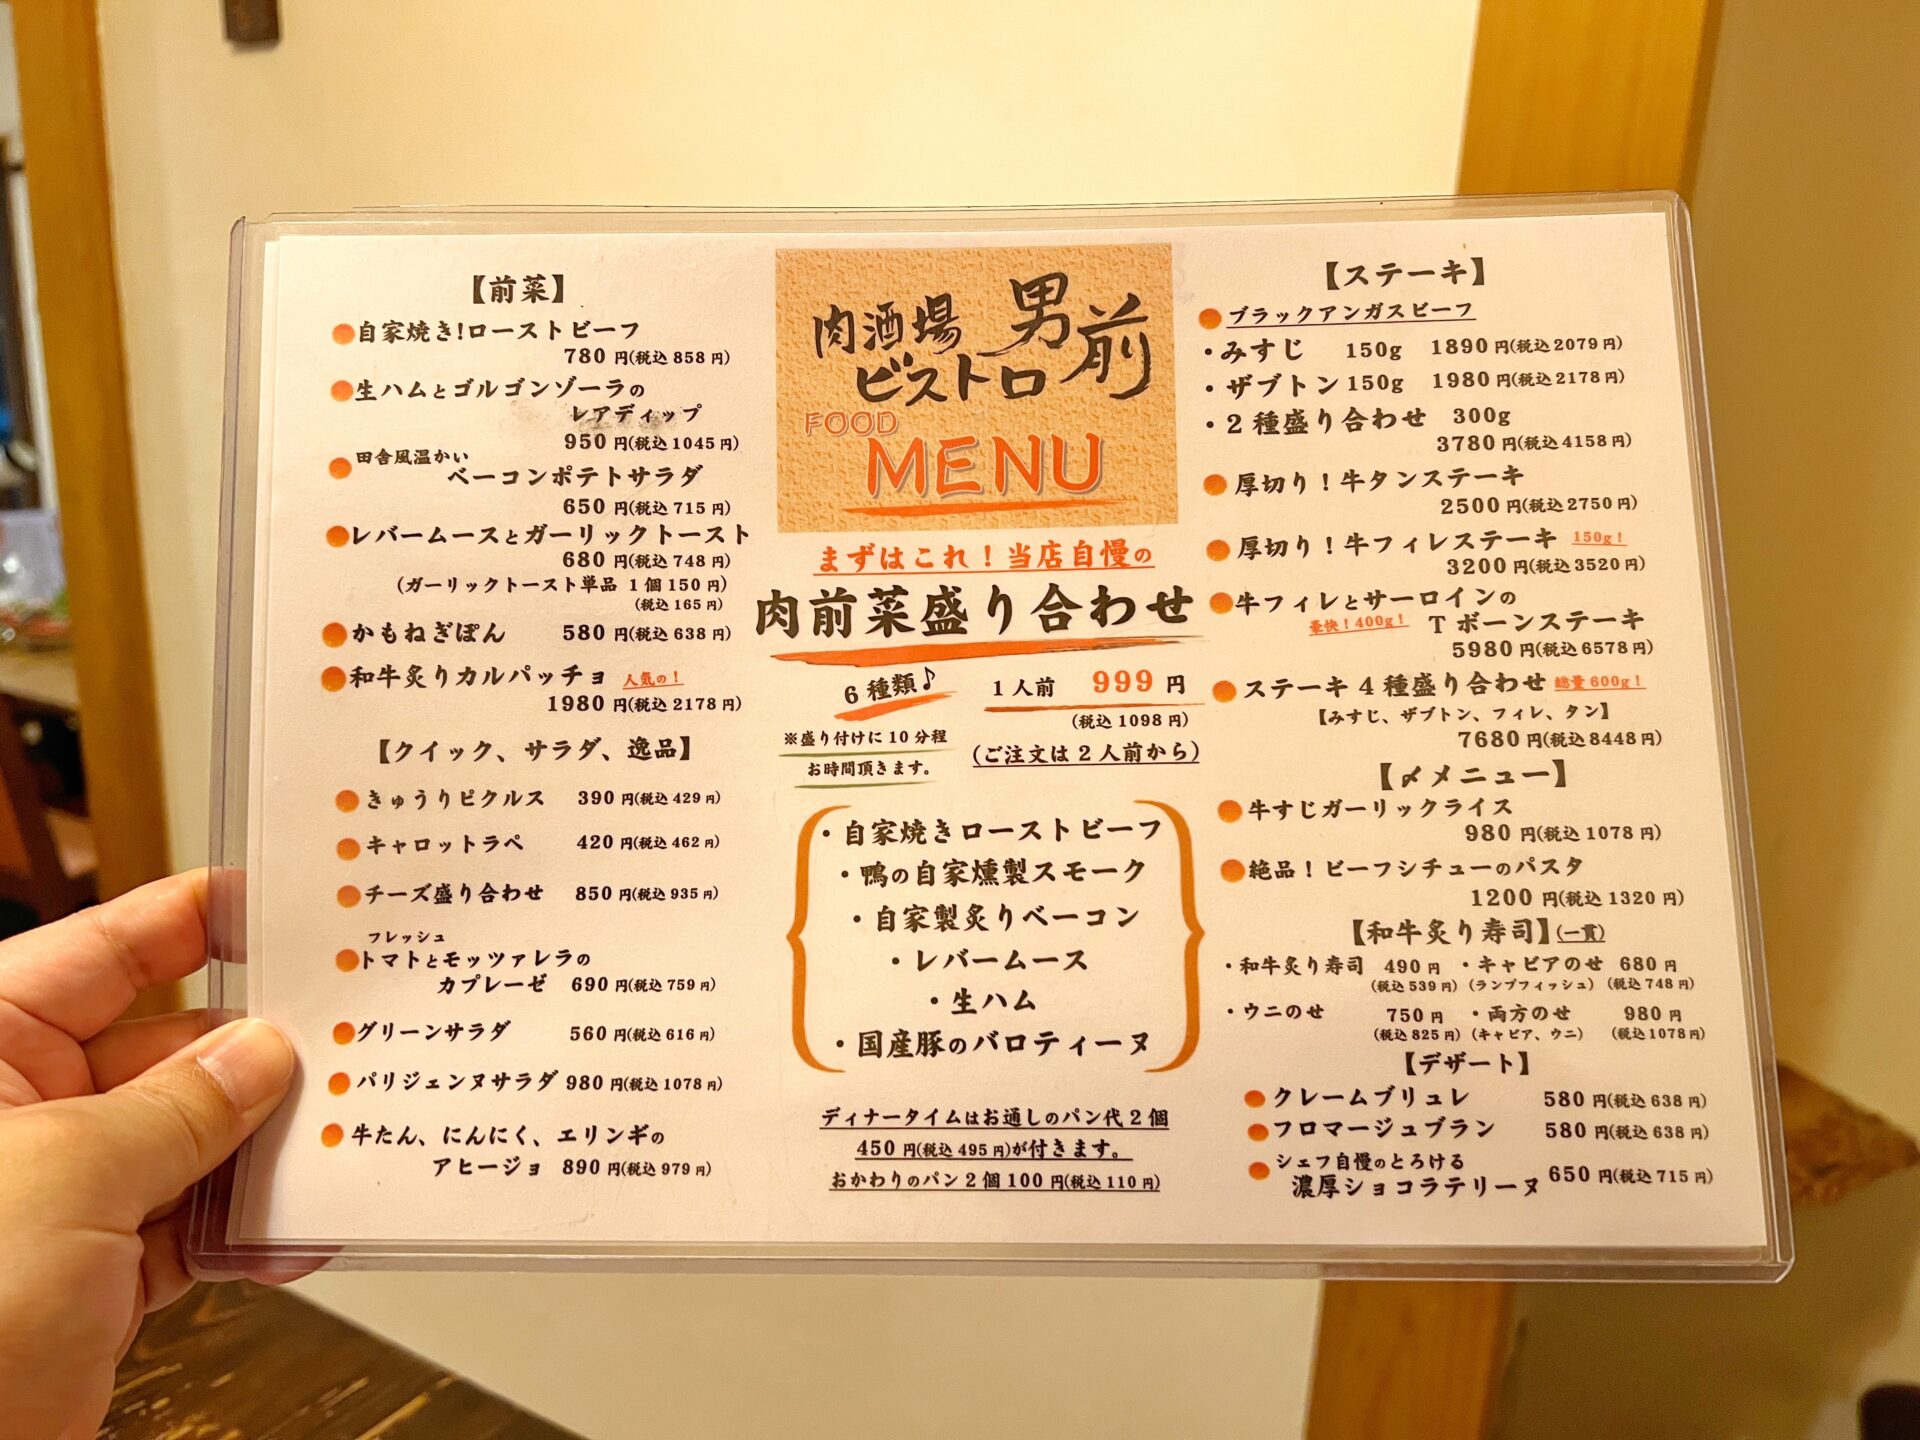 【前菜】
自家焼き!ローストビーフ
780 円(税込858円)
生ハムとゴルゴンゾーラの
レアディップ
950 円(税込1045円)
田舎風温かい
ベーコンポテトサラダ
650 円(税込715円)
レバームースとガーリックトースト
680 円(税込748円)
(ガーリックトースト単品 1個150円)
(税込165円)
かもねぎぽん 580 円(税込638円)
和牛炙りカルパッチョ 人気の!
1980 円(税込2178円)
【クイック、サラダ、逸品】
きゅうりピクルス 390 円(税込429円)
キャロットラペ 420 円(税込462円)
チーズ盛り合わせ 850 円(税込935円)
フレッシュ
トマトとモッツァレラの
カプレーゼ 690 円(税込759円)
グリーンサラダ 560 円(税込616円)
パリジェンヌサラダ 980 円(税込1078円)
牛たん、にんにく、エリンギの
アヒージョ 890 円(税込979円)
肉酒場 男前
ビストロ
FOOD
MENU
まずはこれ!当店自慢の
肉前菜盛り合わせ
6種類♪ 1人前 999 円
(税込1098円)
※盛り付けに10分程
お時間頂きます。
(ご注文は2人前から)
・自家焼きローストビーフ
・鴨の自家燻製スモーク
・自家製炙りベーコン
・レバームース
・生ハム
・国産豚のバロティーヌ
ディナータイムはお通しのパン代2個
450円(税込495円)が付きます。
おかわりのパン2個100円(税込110円)
【ステーキ】
ブラックアンガスビーフ
・みすじ 150g 1890 円(税込2079円)
・ザブトン 150g 1980 円(税込2178円)
・2種盛り合わせ 300g
3780 円(税込4158円)
厚切り!牛タンステーキ
2500 円(税込2750円)
厚切り!牛フィレステーキ 150g!
3200 円(税込3520円)
牛フィレとサーロインの
豪快!400g! Tボーンステーキ
5980 円(税込6578円)
ステーキ4種盛り合わせ 総量600g!
【みすじ、ザブトン、フィレ、タン】
7680 円(税込8448円)
【〆メニュー】
牛すじガーリックライス
980 円(税込1078円)
絶品!ビーフシチューのパスタ
1200 円(税込1320円)
【和牛炙り寿司】(一貫)
・和牛炙り寿司 490 円 ・キャビアのせ 680 円
(税込539円) (ランプフィッシュ) (税込748円)
・ウニのせ 750 円 ・両方のせ 980 円
(税込825円) (キャビア、ウニ) (税込1078円)
【デザート】
クレームブリュレ 580 円(税込638円)
フロマージュブラン 580 円(税込638円)
シェフ自慢のとろける
濃厚ショコラテリーヌ 650 円(税込715円)